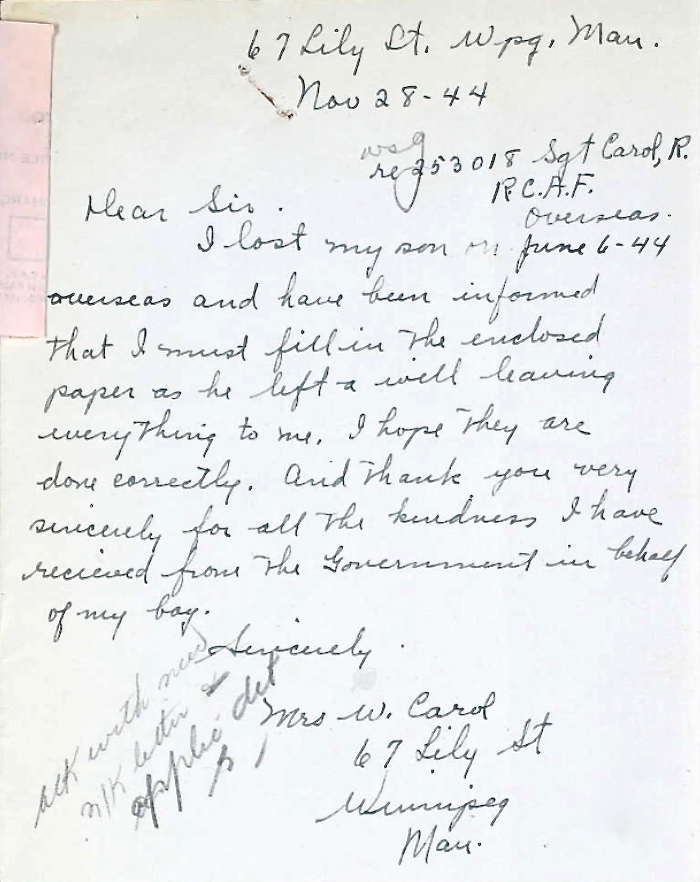 67 Lily St. Wpg, Man.
Nov 28-44
wsg
re 253018 Sgt Carol, R.
R.C.A.F.
Overseas.
Dear Sir.
I lost my son on June 6-44
overseas and have been informed
that I must fill in the enclosed
paper as he left a will leaving
everything to me. I hope they are
done correctly. And thank you very
sincerely for all the kindness I have
recieved from the Government in behalf
of my boy.
Sincerely.
Mrs W. Carol
67 Lily St
Winnipeg
Man.
ack with
n/K letter &
applic det